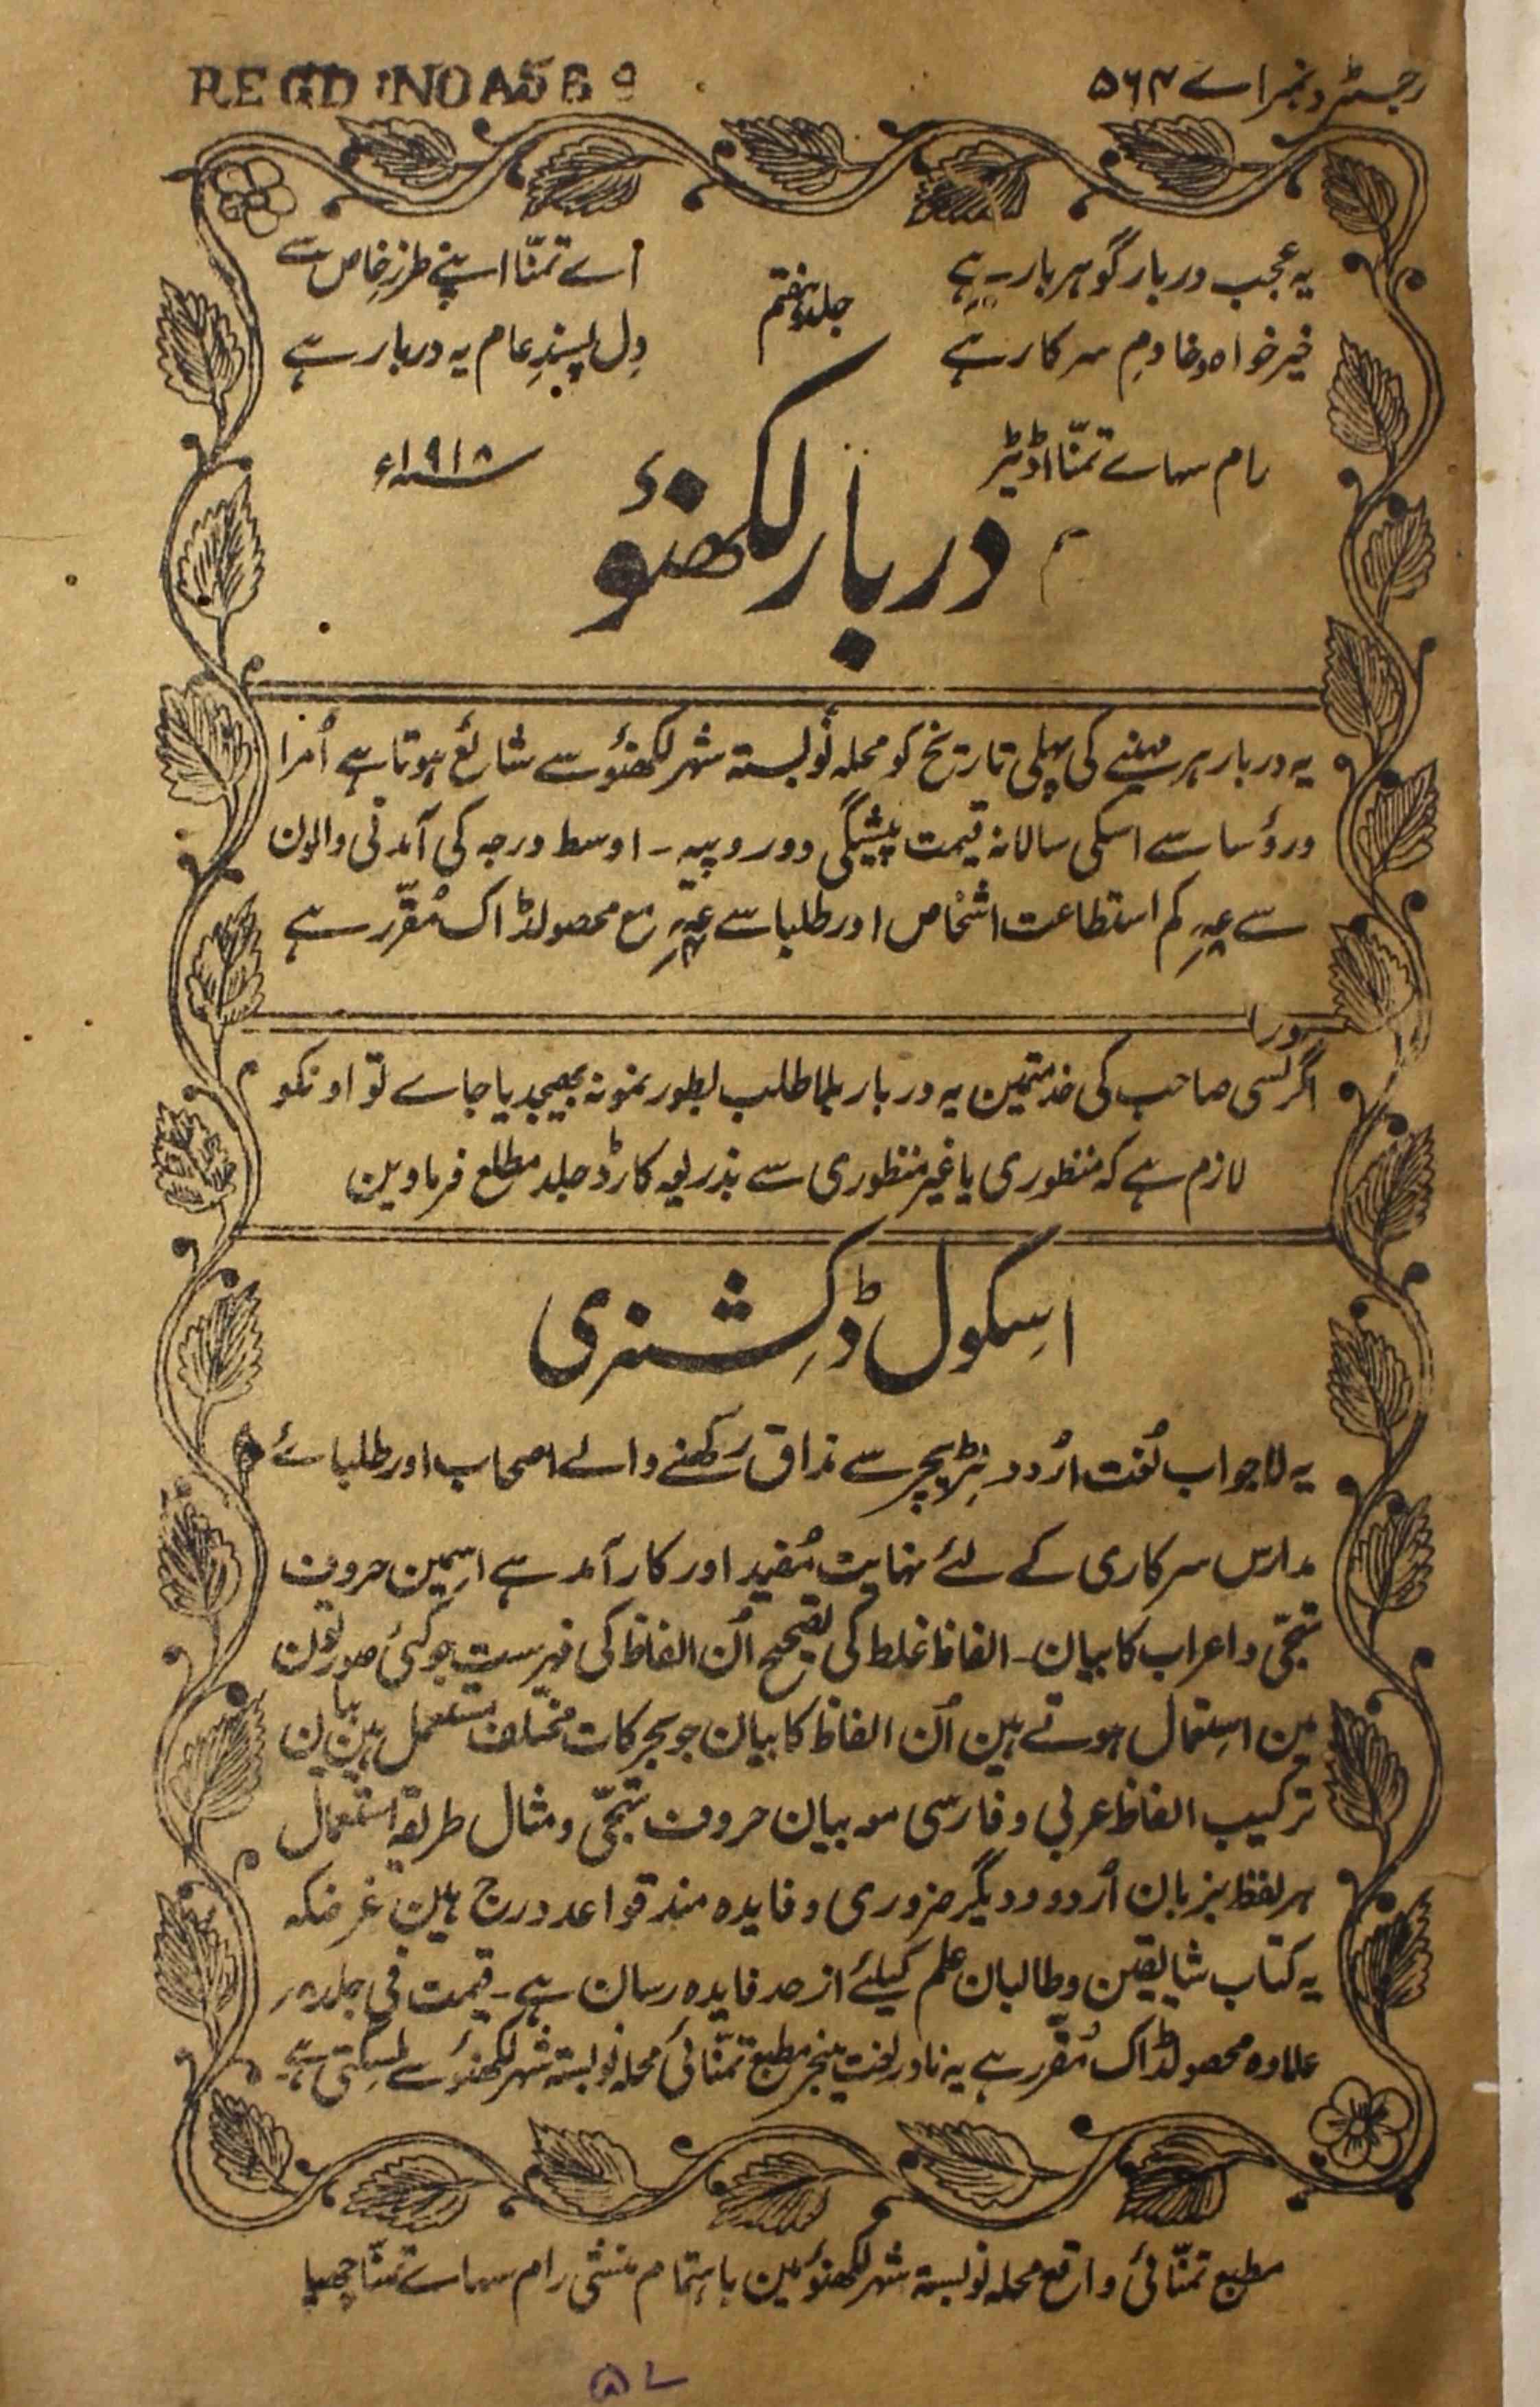 REGD NO A569
رجسٹرڈ نمبر اے ۵۶۴
یہ عجب دربار گوہر بار ہے
اے تمنّا اپنے طرزِ خاص سے
جلد ہفتم
خیر خواہ و خادمِ سرکار ہے
دل پسندِ عام یہ دربار ہے
رام سہاے تمنّا اڈیٹر
۱۹۱۸ء
دربار لکھنؤ
یہ دربار ہر مہینے کی پہلی تاریخ کو محلہ نوبستہ شہر لکھنؤ سے شائع ہوتا ہے اُمرا
و رؤسا سے اسکی سالانہ قیمت پیشگی دو روپیہ ۔ اوسط درجہ کی آمدنی والون
سے کم استطاعت اشخاص اور طلبا سے مع محصولڈاک مُقرّر ہے
اگر کسی صاحب کی خدمتمین یہ دربار بلا طلب بطور نمونہ بھیجدیا جاے تو اونکو
لازم ہے کہ منظوری یا غیر منظوری سے بذریعہ کارڈ جلد مطلع فرماوین
اِسکول ڈِکشنری
یہ لاجواب لُغت اُردو لٹریچر سے مذاق رکھنے والے اصحاب اور طلباے
مدارس سرکاری کے لئے نہایت مُفید اور کارآمد ہے اِسمین حروف
تہجّی و اعراب کا بیان ۔ الفاظ غلط کی تصحیح اُن الفاظ کی فہرست جو کئی صورتون
مین استعمال ہوتے ہین اُن الفاظ کا بیان جو بحرکات مختلف مستعمل ہین بیان
ترکیب الفاظ عربی و فارسی معہ بیان حروف تہجّی و مثال طریقہ استعمال
ہر لفظ بزبان اُردو و دیگر ضروری و فایدہ مند قواعد درج ہین غرضکہ
یہ کتاب شایقین و طالبان علم کیلئے از حد فایدہ رسان ہے ۔ قیمت فی جلد
علاوہ محصولڈاک مُقرّر ہے یہ نادر لغت منیجر مطبع تمنّائی محلہ نوبستہ شہر لکھنؤ سے ملسکتی ہے
مطبع تمنّائی واقع محلہ نوبستہ شہر لکھنؤ مین باہتمام منشی رام سہاے تمنّا چھپا